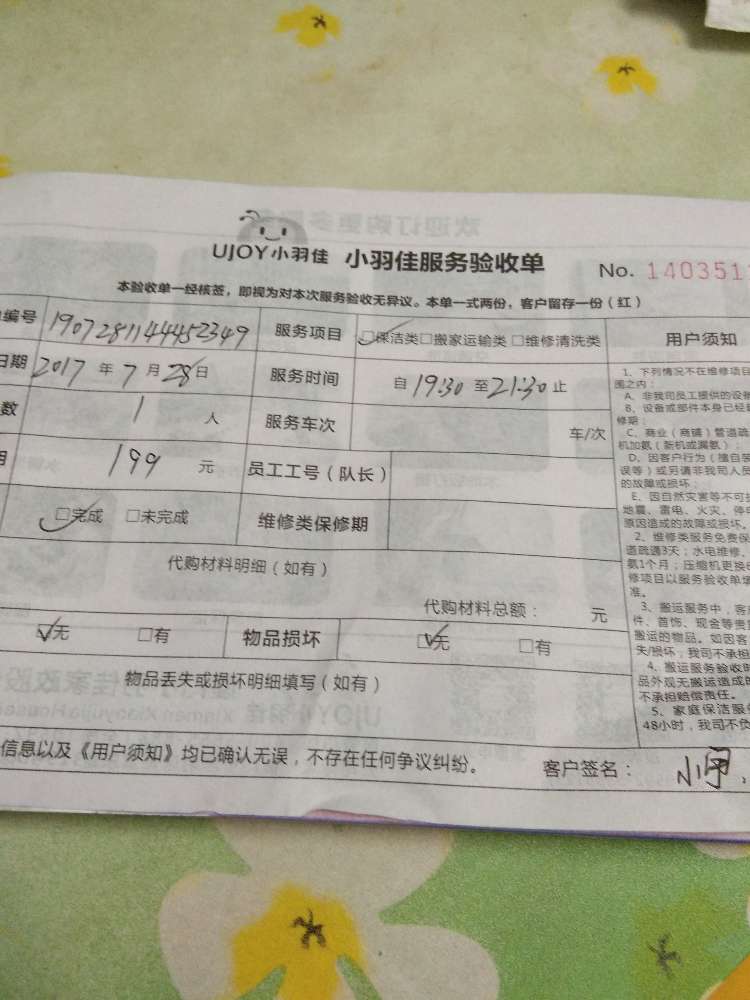 UJOY小羽佳 小羽佳服务验收单 No. 1403511
本验收单一经核签，即视为对本次服务验收无异议。本单一式两份，客户留存一份（红）
编号 1907281144452349 服务项目 □保洁类□搬家运输类□维修清洗类 用户须知
日期 2017 年 7 月 28 日 服务时间 自 19:30 至 21:30 止
数 1 人 服务车次 车/次
用 199 元 员工工号（队长）
□完成 □未完成 维修类保修期
代购材料明细（如有）
代购材料总额： 元
□无 □有 物品损坏 □无 □有
物品丢失或损坏明细填写（如有）
信息以及《用户须知》均已确认无误，不存在任何争议纠纷。 客户签名：
1、下列情况不在维修项目
围之内：
A、非我司员工提供的设备
B、设备或部件本身已经
修期；
C、商业（商铺）管道疏
机加氨（新机或漏氨）；
D、因客户行为（擅自装
误等）或另请非我司人员
的故障或损坏；
E、因自然灾害等不可抗
地震、雷电、火灾、停电
原因造成的故障或损坏。
2、维修类服务免费保
道疏通3天；水电维修、
氨1个月；压缩机更换6
修项目以服务验收单填
准。
3、搬运服务中，客户
件、首饰、现金等贵重
搬运的物品。如因客
失/损坏，我司不承担
4、搬运服务验收时
品外观无搬运造成的
不承担赔偿责任。
5、家庭保洁服务
48小时，我司不负